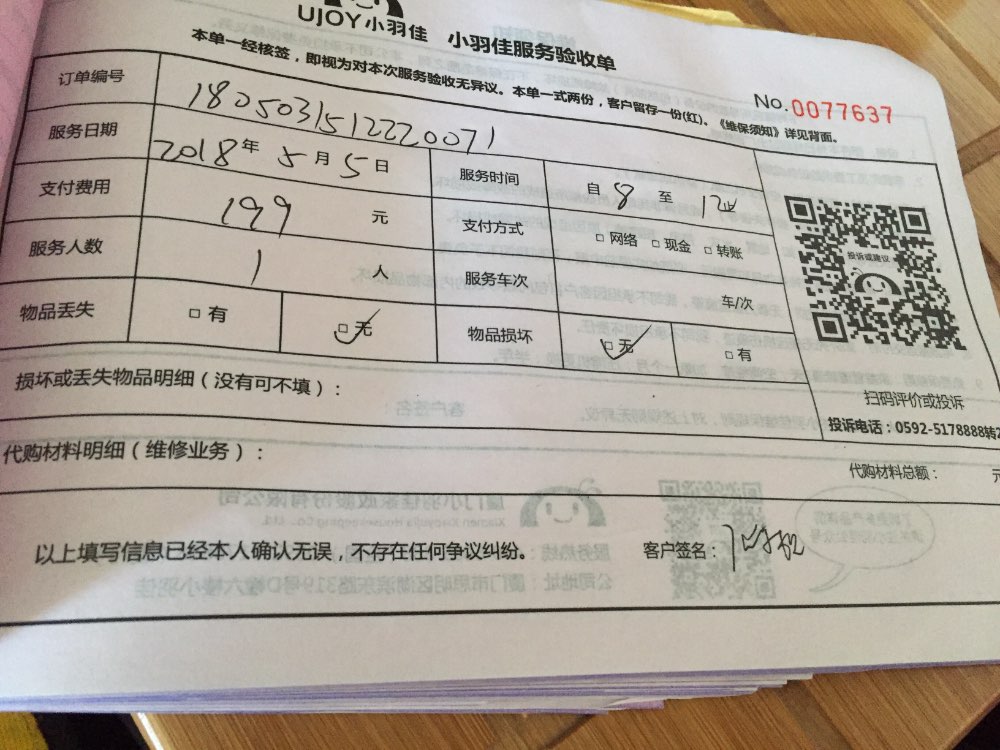 UJOY小羽佳 小羽佳服务验收单
本单一经核签，即视为对本次服务验收无异议。本单一式两份，客户留存一份(红)。《维保须知》详见背面。
No.0077637
订单编号 1805031512220071
服务日期 2018年5月5日 服务时间 自8至12
支付费用 199元 支付方式 □网络 □现金 □转账
服务人数 1人 服务车次 车/次
物品丢失 □有 □无 物品损坏 □无 □有
投诉或建议
扫码评价或投诉
投诉电话：0592-5178888转2
损坏或丢失物品明细（没有可不填）：
代购材料明细（维修业务）：
代购材料总额： 元
以上填写信息已经本人确认无误，不存在任何争议纠纷。 客户签名：